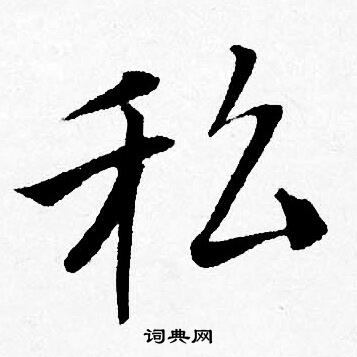 私
词典网